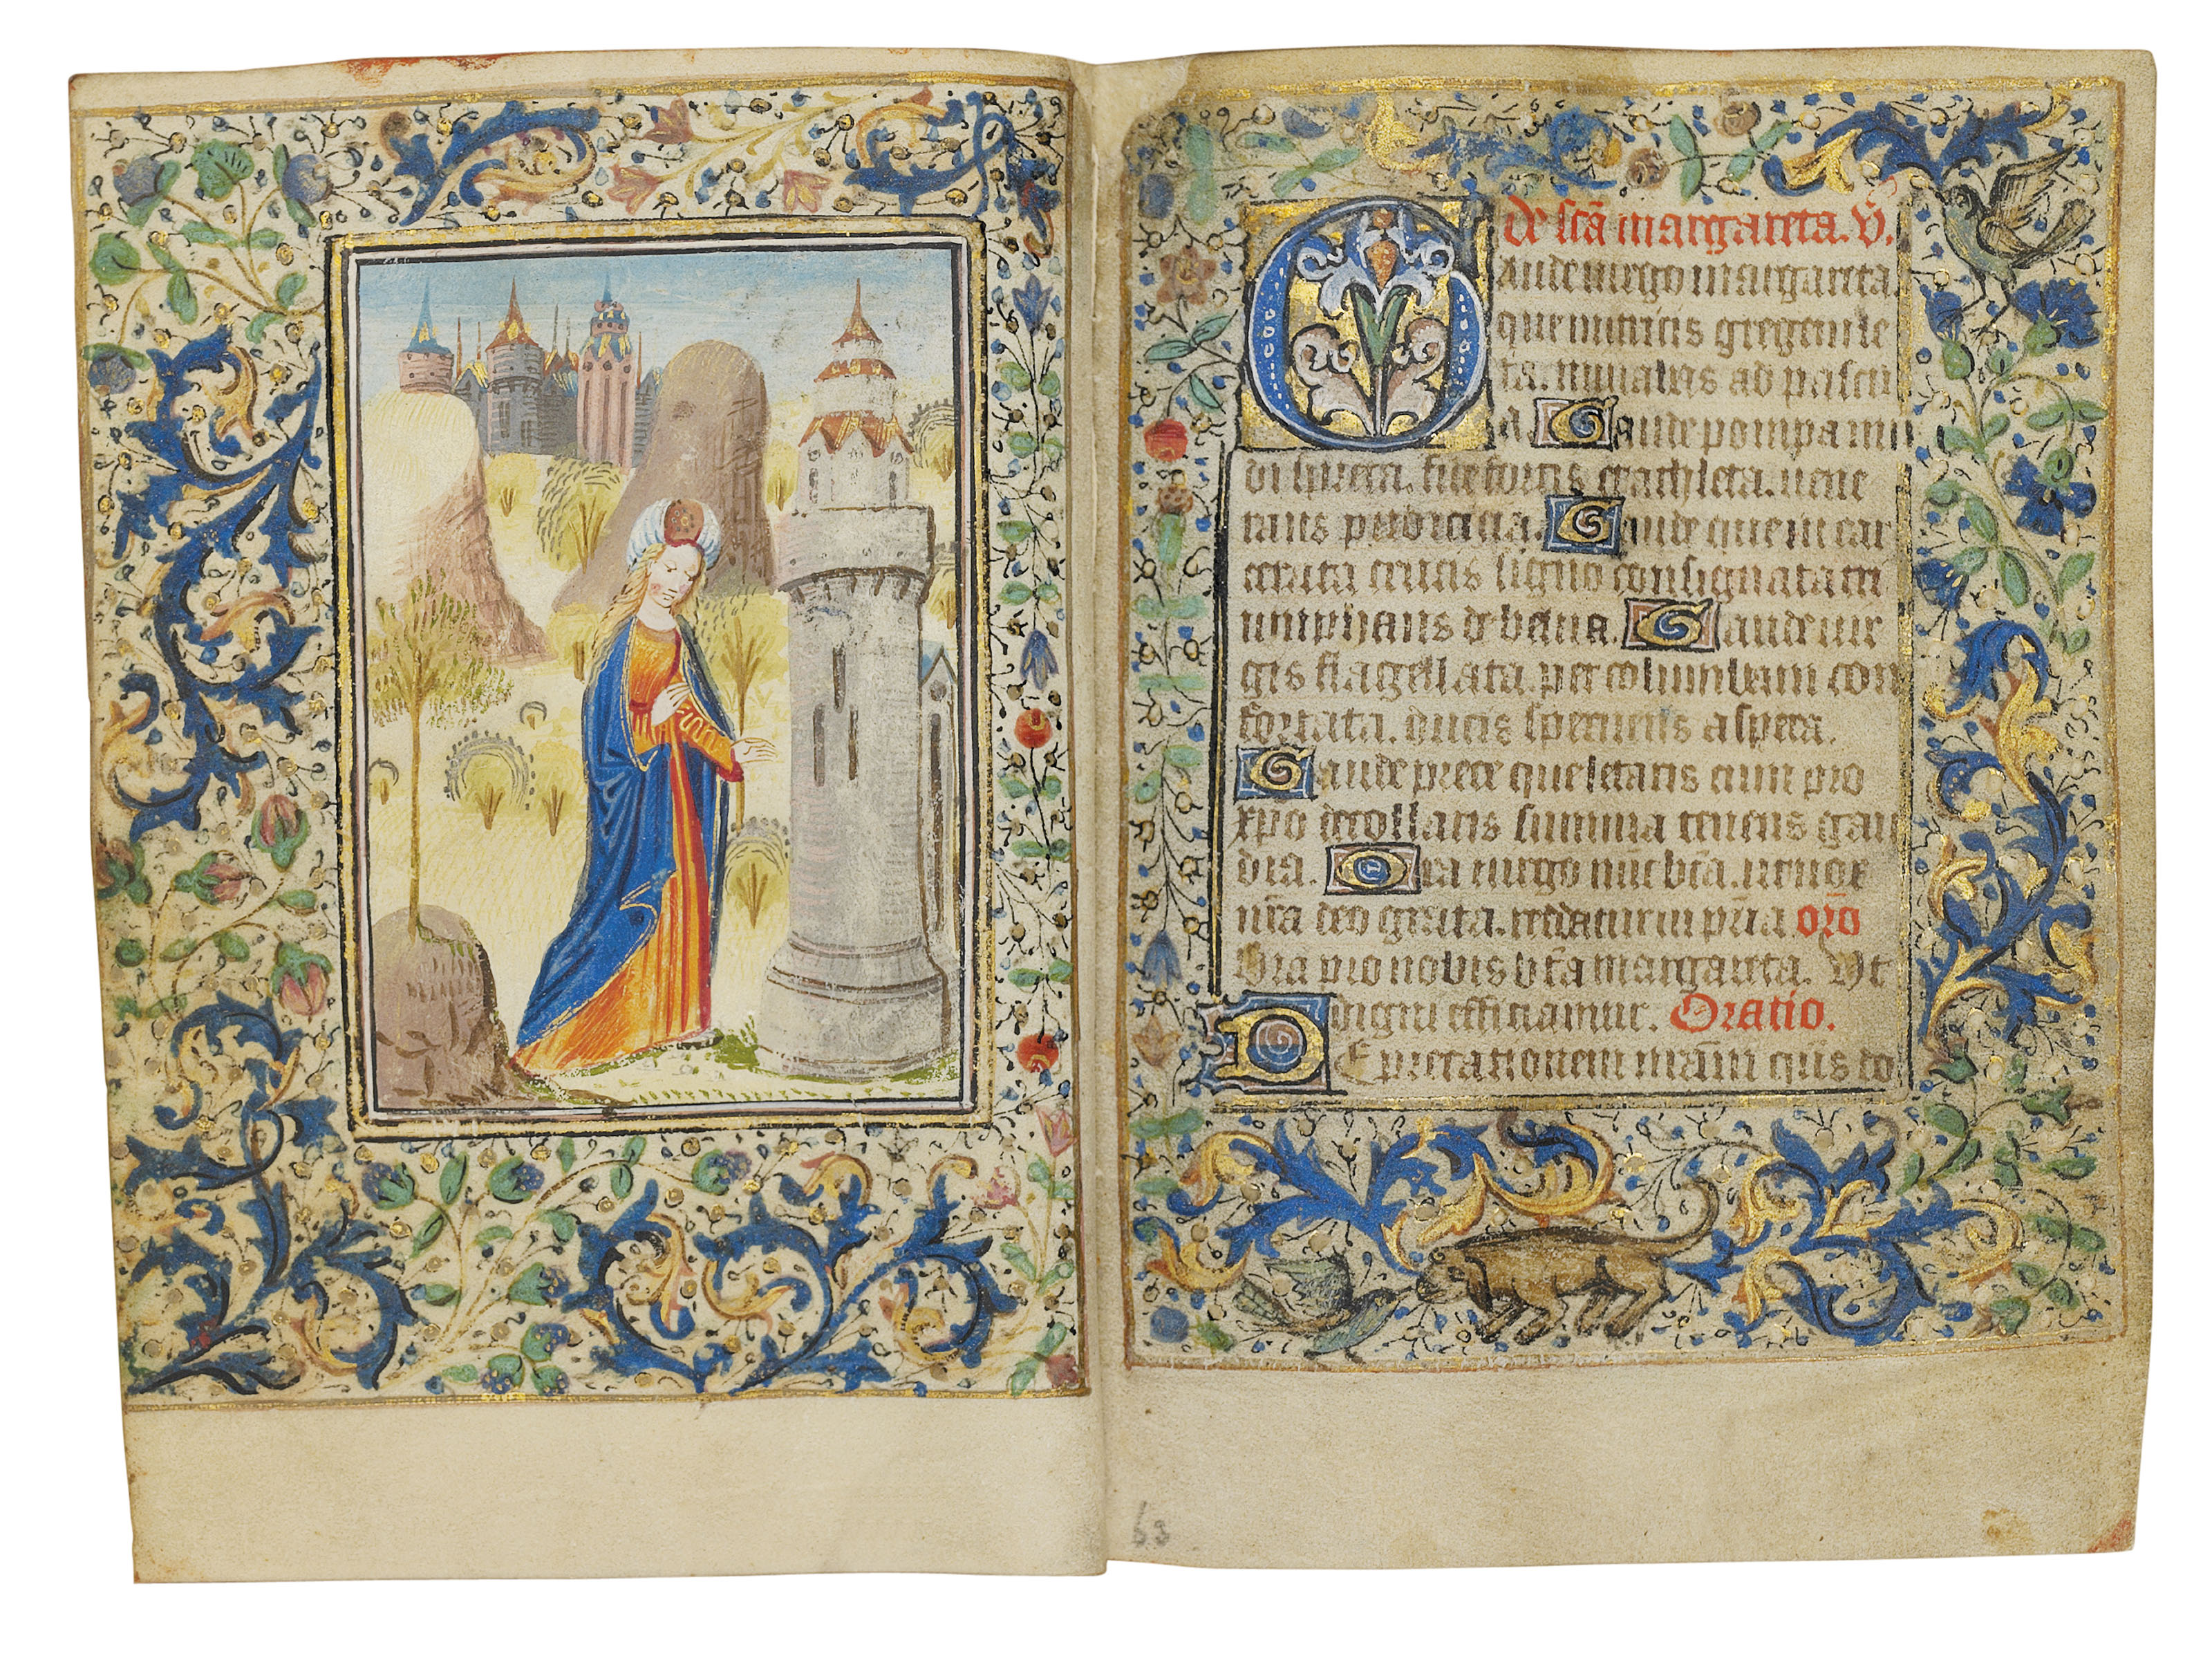 de scā margareta. v̄.
Gaude virgo margareta.
que nutricis gregem le
ta. minabas ad pascu
a. Gaude pompa mū
di spreta. fide fortis et athleta. vene
rans pudicicia. Gaude que in car
cerata crucis ligno consignata tri
umphans de bana. Gaude vir
gis flagellata. per columbam con
fortata. ducis spernens aspera.
Gaude prece que letaris cum pro
xp̄o decollaris summa tenens gau
dia. Ora virgo nūc bt̄a. ut vox
nr̄a deo grata. reddatur in pr̄ia orō
Ora pro nobis bt̄a margareta. Vt
digni efficiamur. Oratio.
DEprecationem nr̄am q̄s do
63